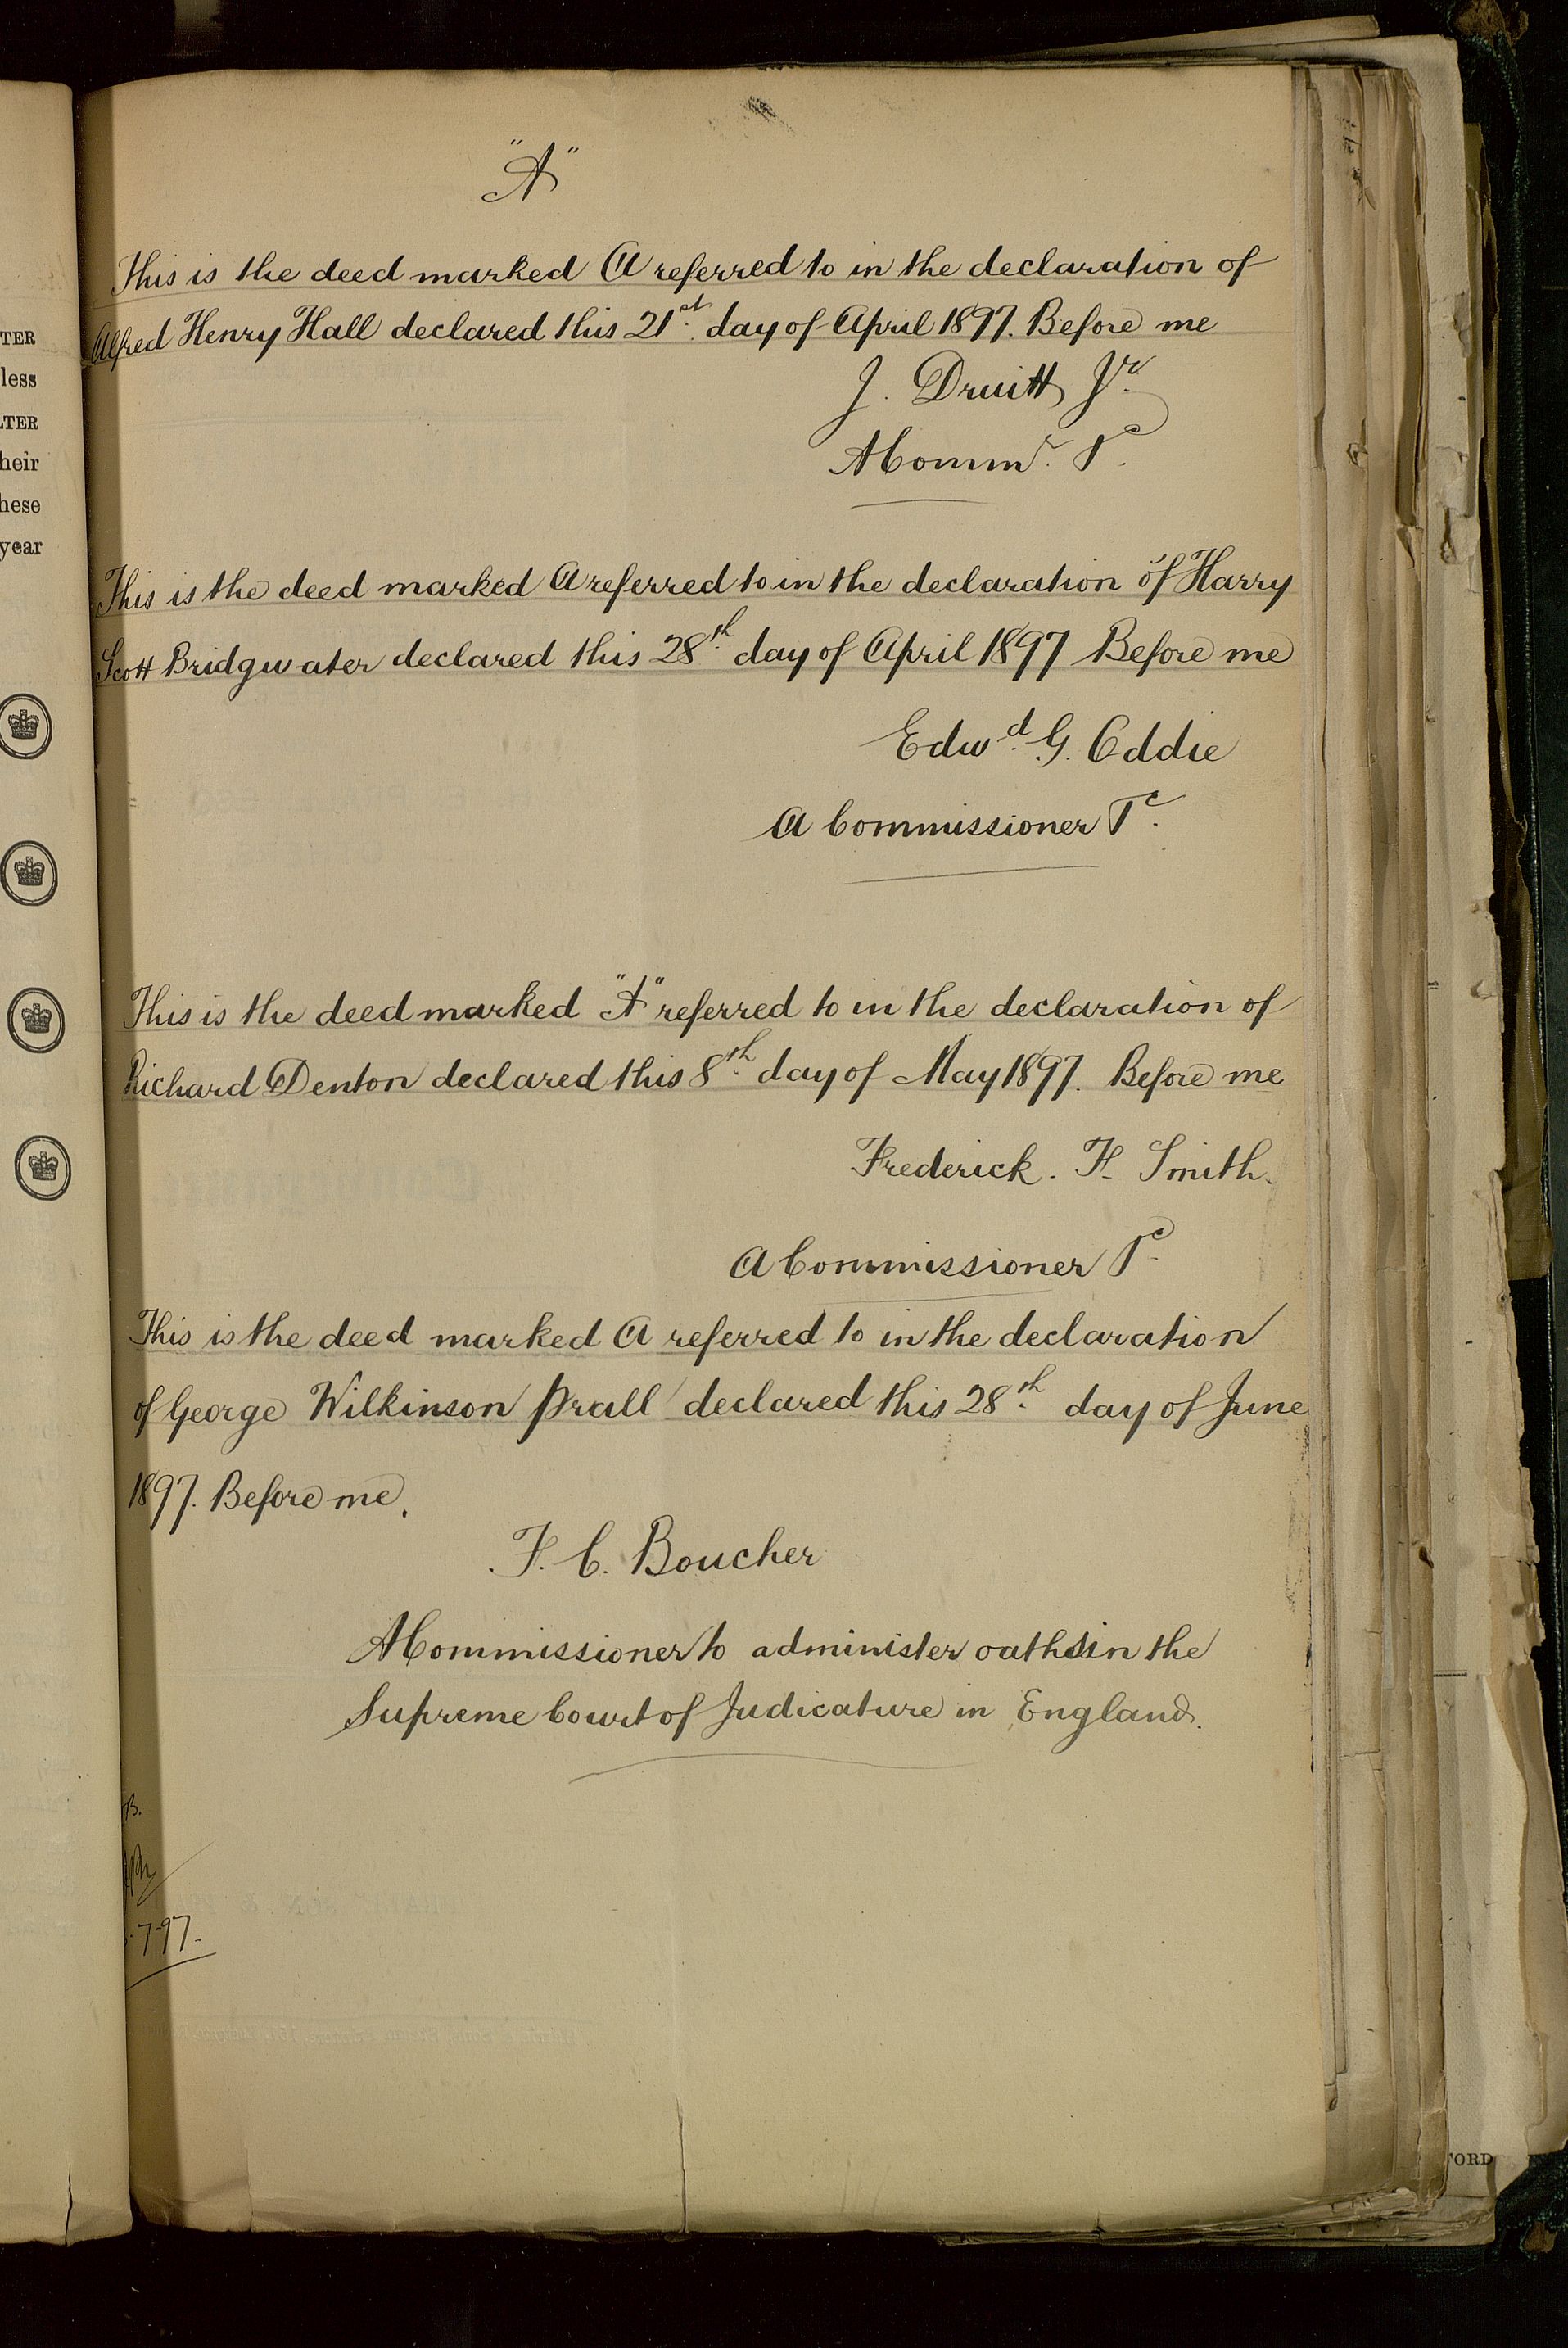 "A"
This is the deed marked A referred to in the declaration of
Alfred Henry Hall declared this 21st. day of April 1897. Before me
J. Druitt Jr.
A Commr. &c.
This is the deed marked A referred to in the declaration of Harry
Scott Bridgwater declared this 28th. day of April 1897 Before me
Edwd. G. Oddie
A Commissioner &c.
This is the deed marked "A" referred to in the declaration of
Richard Denton declared this 8th. day of May 1897. Before me
Frederick. F. Smith.
A Commissioner &c.
This is the deed marked A referred to in the declaration
of George Wilkinson Prall declared this 28th. day of June
1897. Before me.
F. C. Boucher
A Commissioner to administer oaths in the
Supreme Court of Judicature in England.
TER
less
LTER
heir
hese
year
B.
797.
FORD